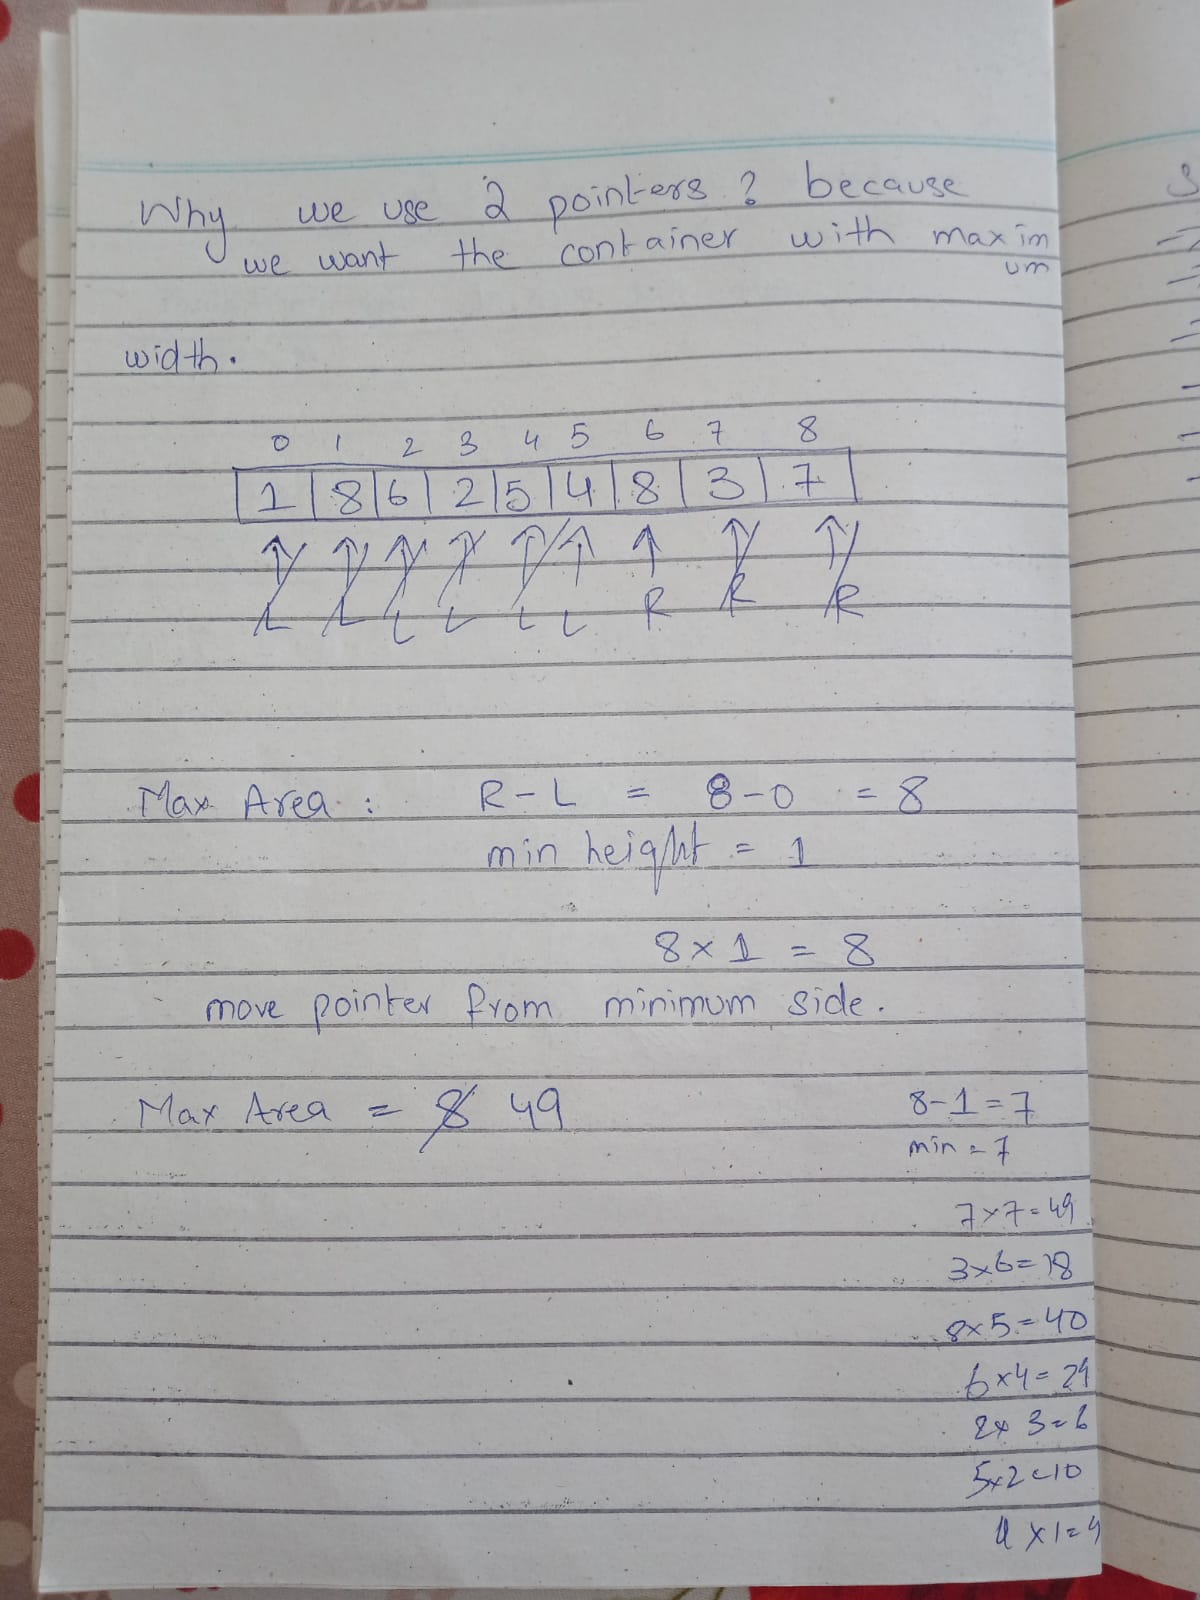 Why we use 2 pointers ? because
we want the container with maxim
um
width.
0 1 2 3 4 5 6 7 8
1 8 6 2 5 4 8 3 7
L L L L L L R R R
Max Area : R-L = 8-0 = 8
min height = 1
8 x 1 = 8
move pointer from minimum side.
Max Area = 8 49
8-1=7
min = 7
7x7=49
3x6=18
8x5=40
6x4=24
2x3=6
5x2=10
4x1=4